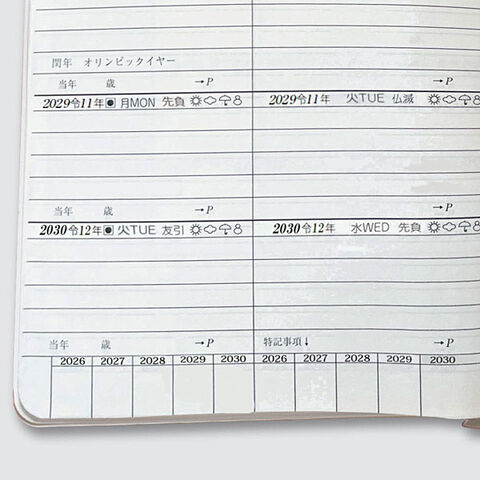 閏年 オリンピックイヤー
当年 歳 →P
2029令11年 月MON 先負
当年 歳 →P
2030令12年 火TUE 友引
当年 歳 →P
2026 2027 2028 2029 2030
→P
2029令11年 火TUE 仏滅
→P
2030令12年 水WED 先負
特記事項↓ →P
2026 2027 2028 2029 2030